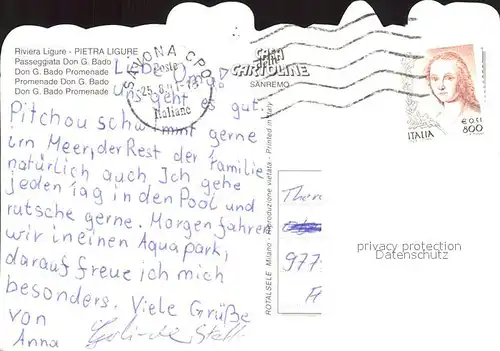 Riviera Ligure - PIETRA LIGURE
Passeggiata Don G. Bado
Don G. Bado Promenade
Promenade Don G. Bado
Don G. Bado Promenade
SAVONA CPO
Poste
Italiane
CASA
delle
CARTOLINE
SANREMO
ITALIA
€ 0,41
800
Liebe Oma!
uns geht es gut.
Pitchou schwimmt gerne
im Meer, der Rest der Familie
natürlich auch Ich gehe
jeden Tag in den Pool und
rutsche gerne. Morgen fahren
wir in einen Aquapark,
darauf freue ich mich
besonders. Viele Grüße
von
Anna
ROTALSELE Milano - Riproduzione vietata - Printed in Italy
977
privacy protection
Datenschutz